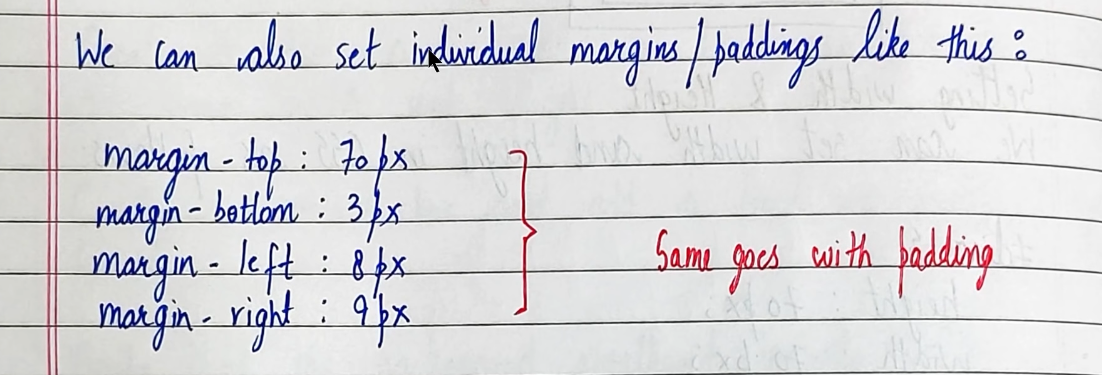 We can also set individual margins/paddings like this :
margin-top : 70px
margin-bottom : 3px
margin-left : 8px
margin-right : 9px
Same goes with padding